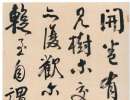 開卷有
見樹木交
亦復歡尔
暫至自謂